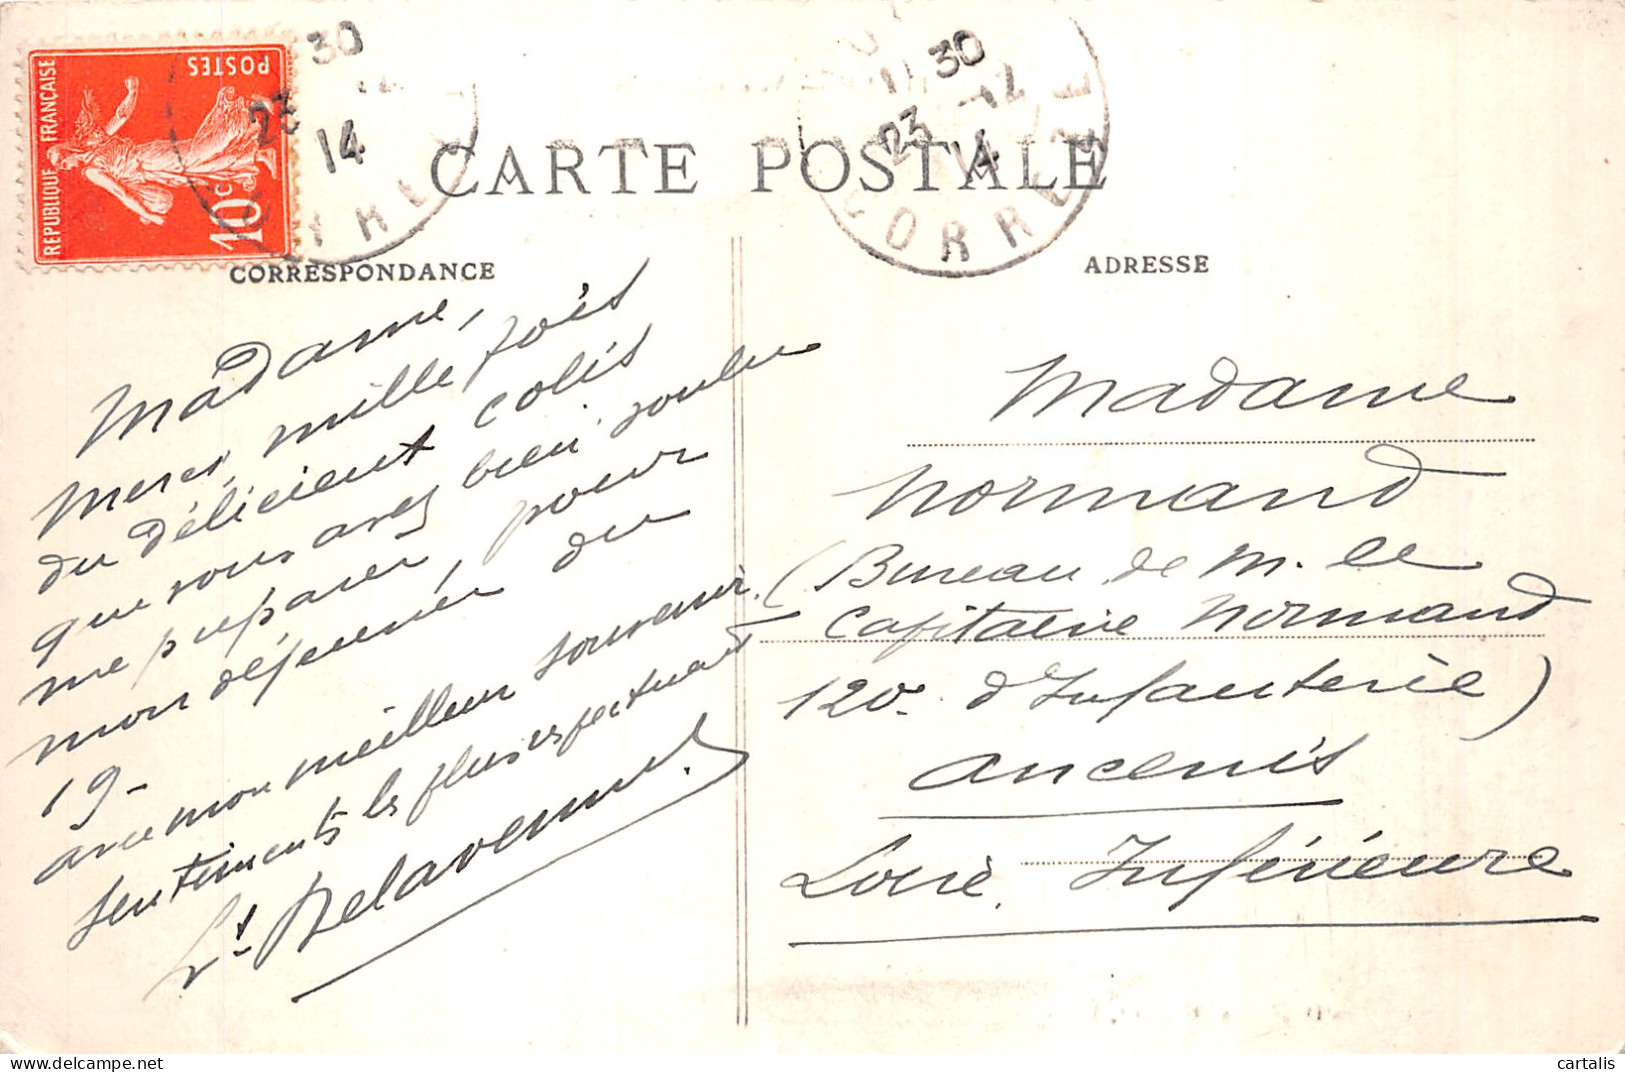 REPUBLIQUE FRANÇAISE
POSTES
10c
30
23 12
14
11 30
23 -12
14
CORREZE
CARTE POSTALE
CORRESPONDANCE
ADRESSE
Madame,
Merci, mille fois
du délicieux colis
que vous avez bien voulu
me préparer, pour
mon déjeuner du
19-
avec mon meilleur souvenir.
sentiments les plus respectueux
Lt Delavenne
Madame
Normand
(Bureau de M. le
Capitaine Normand
120e d'Infanterie)
Ancenis
Loire Inférieure
cartalis